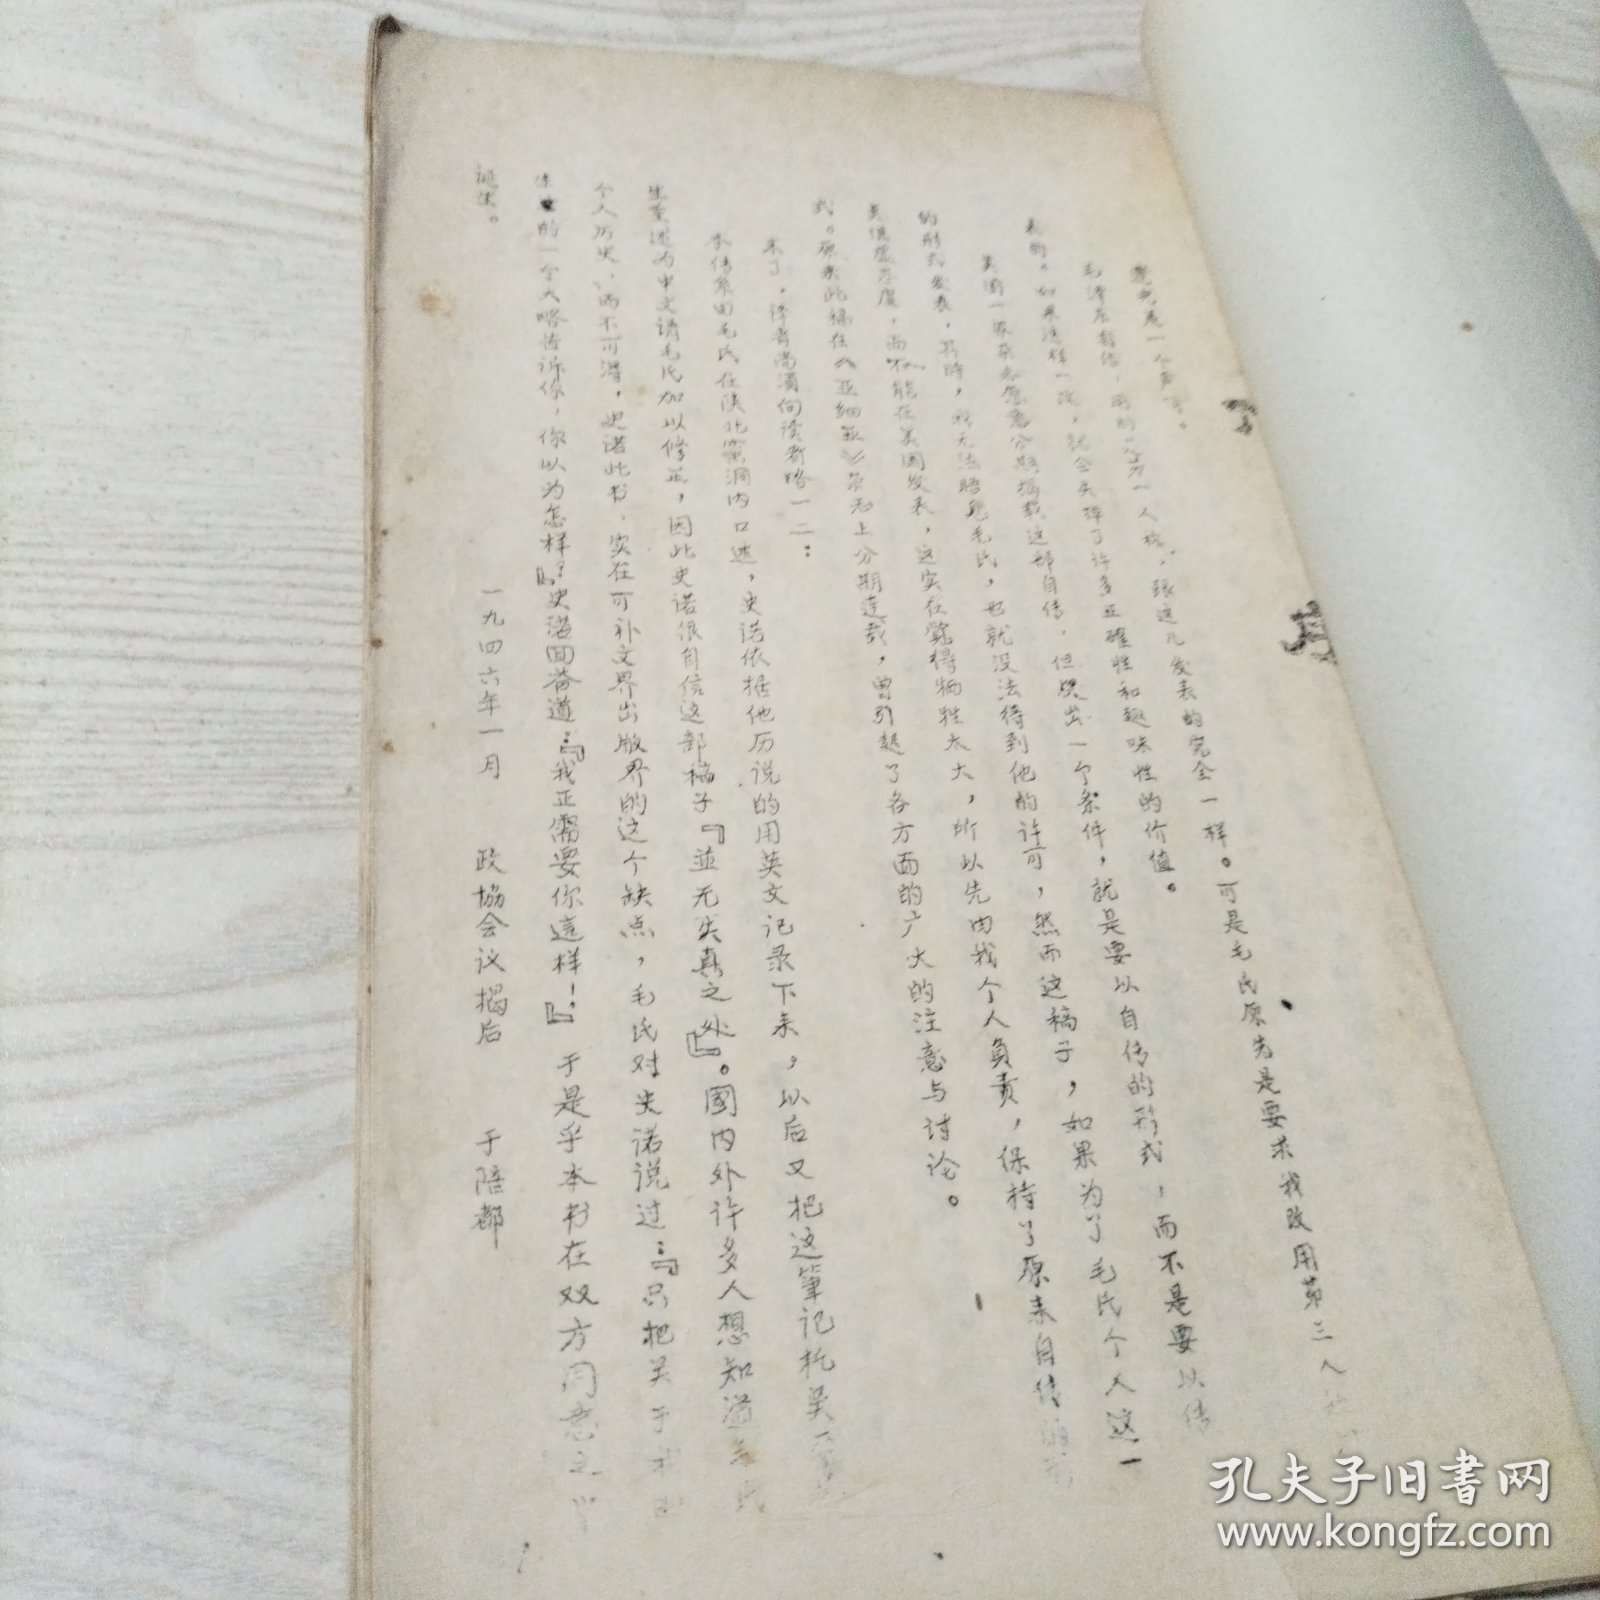 毛泽东自传，用的是第一人称，跟这儿发表的完全一样。可是毛氏原先是要求我改用第三人
表的。如果这样一改，就会失掉了许多正確性和趣味性的价值。
美国一家杂志愿意分期揭载这部自传，但提出一个条件，就是要以自传的形式，而不是要以传
的形式发表，其時，我无法晤見毛氏，也就没法得到他的许可，然而这稿子，如果为了毛氏个人这一
而不能在美国发表，这实在觉得牺牲太大，所以先由我个人負责，保持了原来自传
式。原来此稿在《亚细亚》杂志上分期连载，曾引起了各方面的广大的注意与讨论。
末了，译者尚須向读者略一二：
本传系由毛氏在陕北窑洞内口述，史诺依据他历说的用英文记录下来，以后又把这筆记托吴
生重述为中文請毛氏加以修正，因此史诺很自信这部稿子『並无失真之处』。國内外许多人想知道毛氏
个人历史，而不可得，史诺此书，实在可补文界出版界的这个缺点，毛氏对史诺说过：『只把关于我
的一个大略告诉你，你以为怎样？』史诺回答道：『我正需要你這样！』于是乎本书在双方同意之中
诞生。
一九四六年一月 政協会议揭后 于陪都
孔夫子旧書网
www.kongfz.com